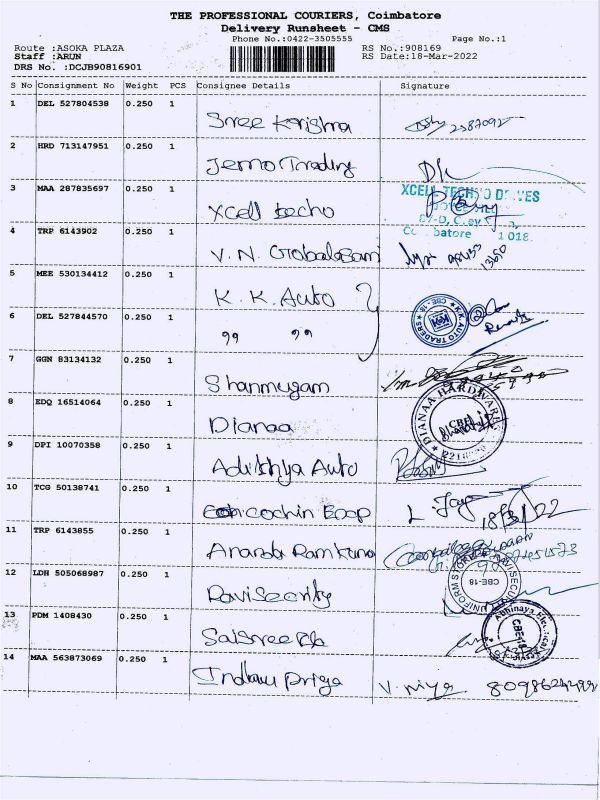 THE PROFESSIONAL COURIERS, Coimbatore
Delivery Runsheet - CMS
Phone No.:0422-3505555 Page No.:1
Route :ASOKA PLAZA RS No.:908169
Staff :ARUN RS Date:18-Mar-2022
DRS No. :DCJB90816901
S No Consignment No Weight PCS Consignee Details Signature
1 DEL 527804538 0.250 1 Sree Krishna
2 HRD 713147951 0.250 1 Jemo Trading
3 MAA 287835697 0.250 1 Xcell techo
XCELL TECHNO DRIVES
4 TRP 6143902 0.250 1 V. N. Global
5 MEE 530134412 0.250 1 K. K. Auto
K.K AUTO TRADERS CBE-18
6 DEL 527844570 0.250 1 " "
7 GGN 83134132 0.250 1 Shanmugam
8 EDQ 16514064 0.250 1 Dianaa
DIANAA HARDWARE CBE
9 DPI 10070358 0.250 1 Adithya Auto
10 TCG 50138741 0.250 1 cochin 18/3/22
11 TRP 6143855 0.250 1 Ananda Ramkuna
12 LDH 505068987 0.250 1 Ravi Security
UNIFORM STORE CBE-18
13 PDM 1408430 0.250 1 Saisree
Abhinaya Electrical CBE-18
14 MAA 563873069 0.250 1 Indhu Priya V. niya